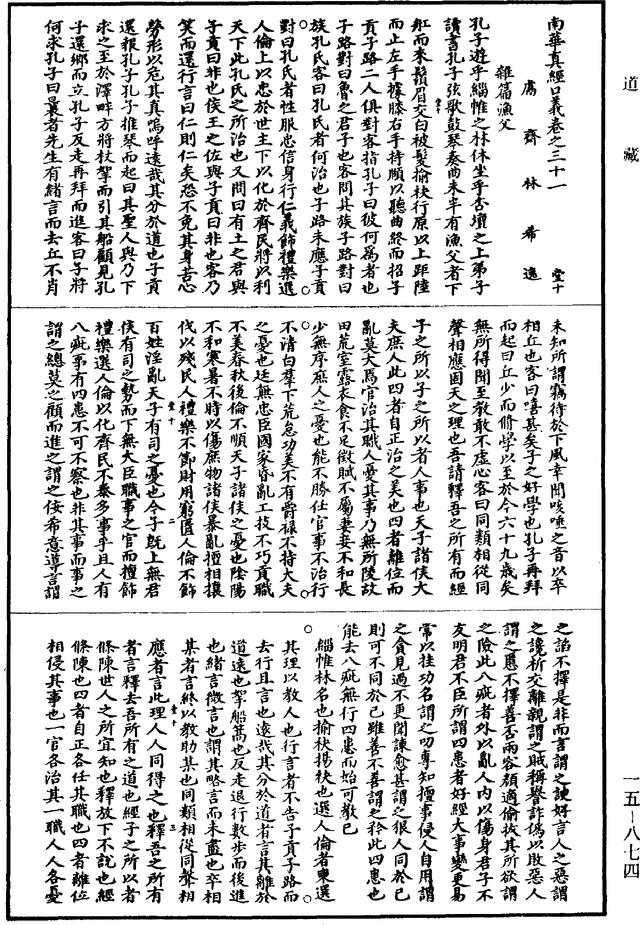 道藏
南華真經口義卷之三十一
堂十
鬳齋林希逸
雜篇漁父
孔子遊乎緇帷之林休坐乎杏壇之上弟子
讀書孔子弦歌鼓琴奏曲未半有漁父者下
舡而來鬚眉交白被髮揄袂行原以上距陸
而止左手據膝右手持頤以聽曲終而招子
貢子路二人俱對客指孔子曰彼何為者也
子路對曰魯之君子也客問其族子路對曰
族孔氏客曰孔氏者何治也子路未應子貢
對曰孔氏者性服忠信身行仁義飾禮樂選
人倫上以忠於世主下以化於齊民將以利
天下此孔氏之所治也又問曰有土之君與
子貢曰非也侯王之佐與子貢曰非也客乃
笑而還行言曰仁則仁矣恐不免其身苦心
勞形以危其真嗚呼遠哉其分於道也子貢
還報孔子孔子推琴而起曰其聖人與乃下
求之至於澤畔方將杖拏而引其船顧見孔
子還鄉而立孔子反走再拜而進客曰子將
何求孔子曰曩者先生有緒言而去丘不肖
未知所謂竊待於下風幸聞咳唾之音以卒
相丘也客曰嘻甚矣子之好學也孔子再拜
而起曰丘少而脩學以至於今六十九歲矣
無所得聞至教敢不虛心客曰同類相從同
聲相應固天之理也吾請釋吾之所有而經
子之所以子之所以者人事也天子諸侯大
夫庶人此四者自正治之美也四者離位而
亂莫大焉官治其職人憂其事乃無所陵故
田荒室露衣食不足徵賦不屬妻妾不和長
少無序庶人之憂也能不勝任官事不治行
不清白羣下荒怠功美不有爵祿不持大夫
之憂也廷無忠臣國家昏亂工技不巧貢職
不美春秋後倫不順天子諸侯之憂也陰陽
不和寒暑不時以傷庶物諸侯暴亂擅相攘
伐以殘民人禮樂不節財用窮匱人倫不飭
百姓淫亂天子有司之憂也今子既上無君
侯有司之勢而下無大臣職事之官而擅飾
禮樂選人倫以化齊民不泰多事乎且人有
八疵事有四患不可不察也非其事而事之
謂之總莫之顧而進之謂之佞希意導言謂
之諂不擇是非而言謂之諛好言人之惡謂
之讒析交離親謂之賊稱譽詐偽以敗惡人
謂之慝不擇善否兩容頰適偷拔其所欲謂
之險此八疵者外以亂人內以傷身君子不
友明君不臣所謂四患者好經大事變更易
常以挂功名謂之叨專知擅事侵人自用謂
之貪見過不更聞諫愈甚謂之狠人同於己
則可不同於己雖善不善謂之矜此四患也
能去八疵無行四患而始可教已
緇帷林名也揄袂揚袂也選人倫者柬選
其理以教人也行言者不告子貢子路而
去行且言也遠哉其分於道者言其離於
道遠也拏船篙也反走退行數步而後進
也緒言微言也謂其略言而未盡也卒相
其者言終以教助其也同類相從同聲相
應者言此理人人同得之也釋吾之所有
者言釋去吾所有之道也經子之所以者
條陳世人之所宜知也釋放下不說也經
條陳也四者自正各任其職也四者離位
相侵其事也一官各治其一職人人各憂
一五—八七四